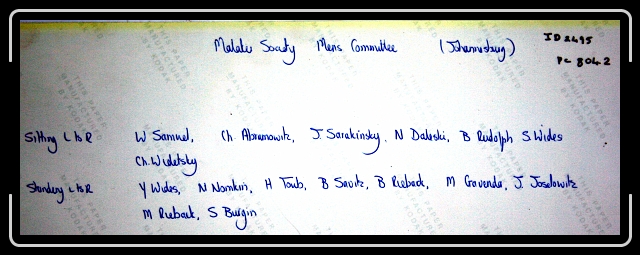 Malatie Society Mens Committee (Johannesburg)
ID2495
PC 8042
Sitting L to R W Samuel, Ch. Abramowitz, J. Sarakinsky. N Daleski, B Rudolph S Wides
Ch. Widetsky
Standing L to R Y Wides, N Nomkin, H Taub, B Savitz, B Rieback, M Govendo, J. Joselowitz
M Rieback, S Burgin
THIS PAPER
MANUFACTURED
BY KODAK